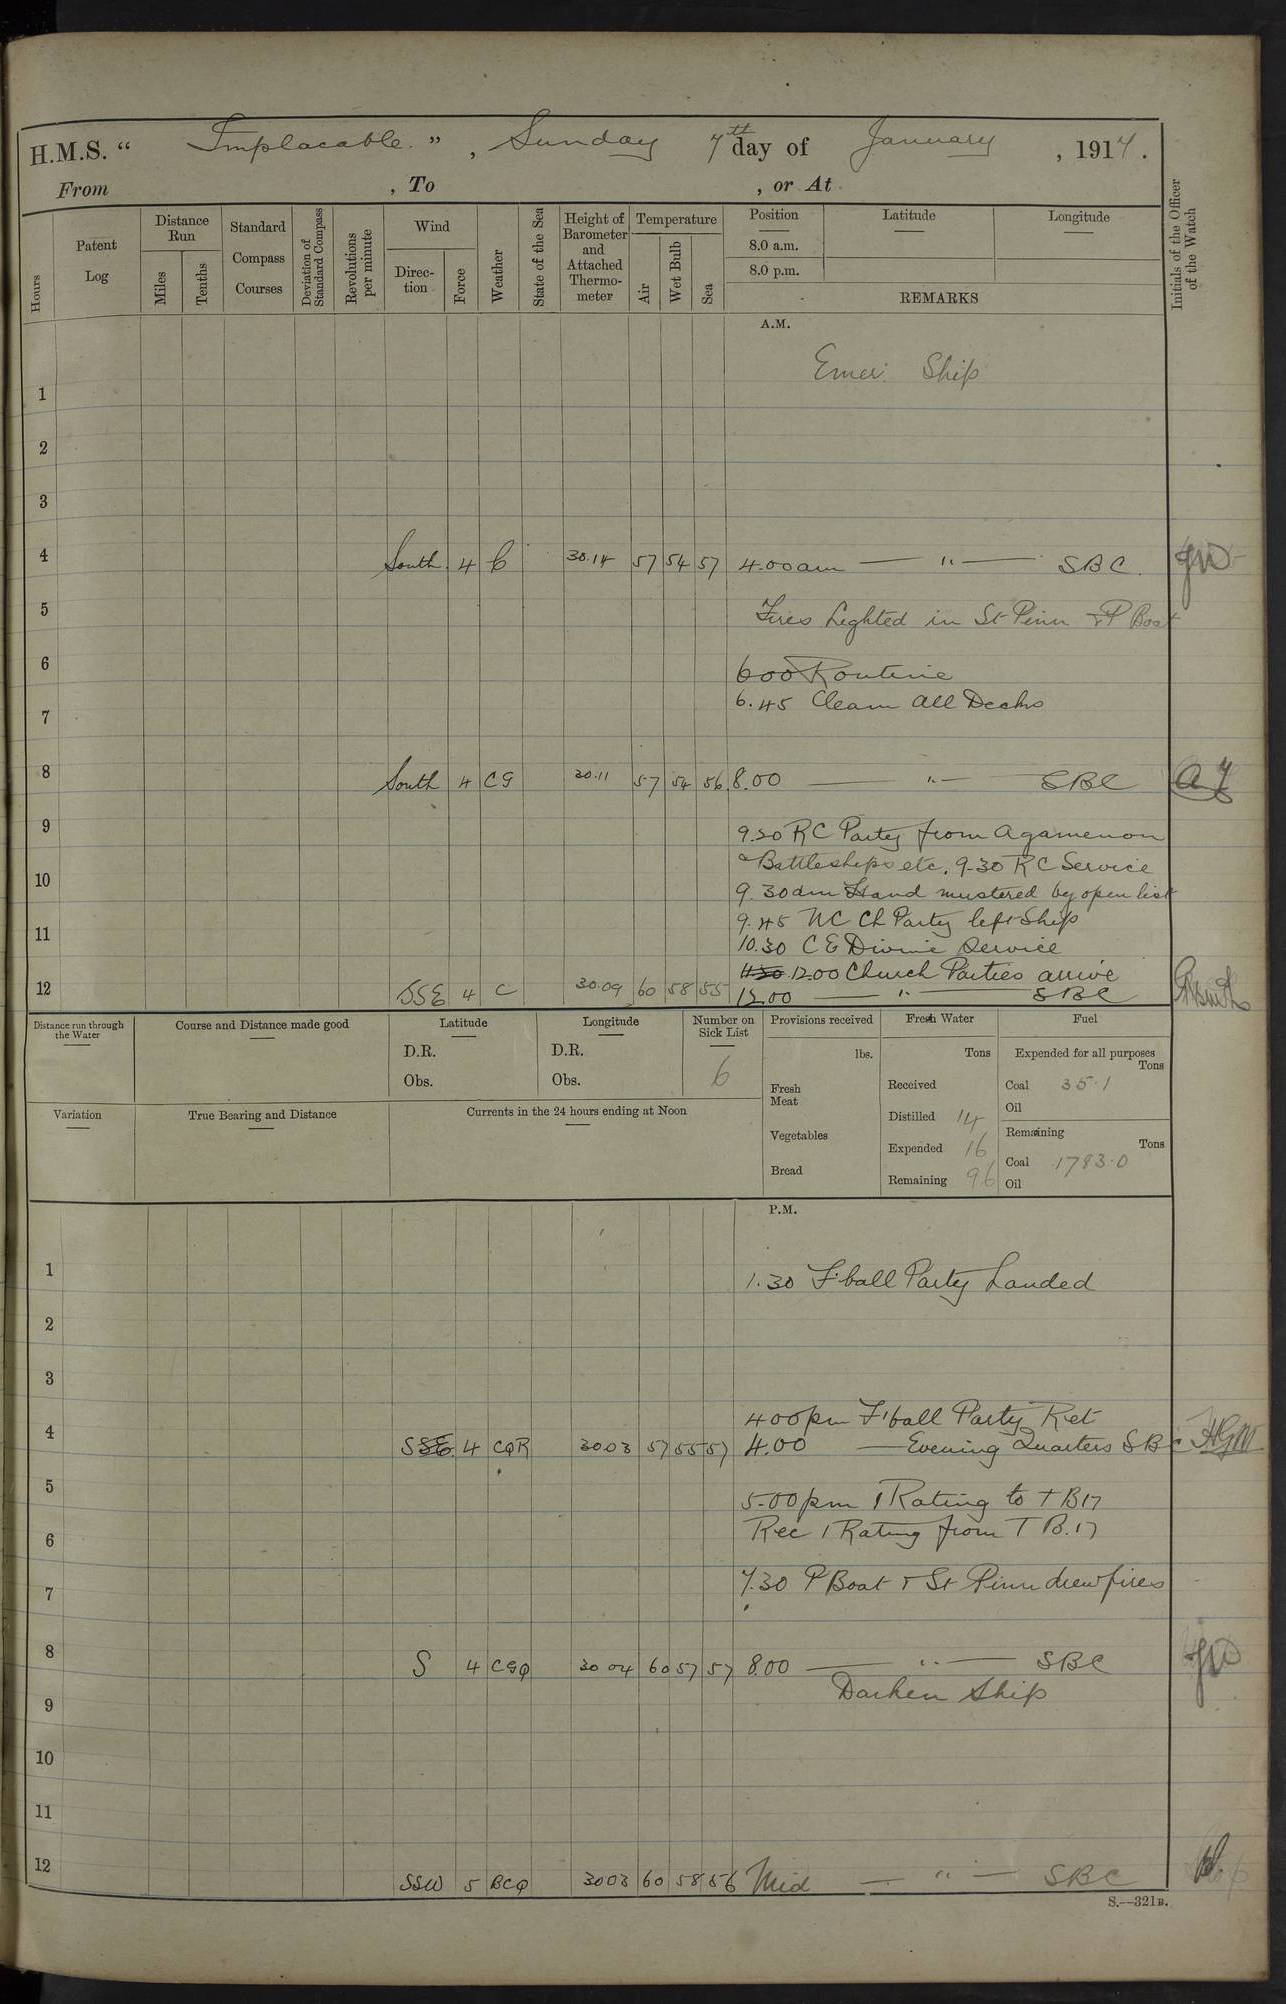 H.M.S. " Implacable. " , Sunday 7th day of January , 1917.
From , To , or At
Hours
Patent Log
Distance Run
Miles
Tenths
Standard Compass Courses
Deviation of Standard Compass
Revolutions per minute
Wind
Direction
Force
Weather
State of the Sea
Height of Barometer and Attached Thermometer
Temperature
Air
Wet Bulb
Sea
Position Latitude Longitude
8.0 a.m.
8.0 p.m.
REMARKS
Initials of the Officer of the Watch
A.M.
Ship
1
2
3
4 South 4 C 30.14 57 54 57 4.00am — " — SBC.
5 Fires Lighted in St Pinn & P Boat
6 600 Routine
6.45 Clean All Decks
7
8 South 4 CG 30.11 57 54 56 8.00 — " — SBC
9 9.20 RC Party from Agamemnon
& Battleships etc. 9-30 RC Service
10 9.30am Hand mustered by open list
9.45 NC Ch Party left Ship
11 10.30 CE Divine Service
11.30 12.00 Church Parties arrive
12 SSE 4 C 30.09 60 58 55 12.00 — " — SBC
Distance run through the Water
Course and Distance made good
Latitude
D.R.
Obs.
Longitude
D.R.
Obs.
Number on Sick List
6
Provisions received
lbs.
Fresh Meat
Vegetables
Bread
Fresh Water
Tons
Received
Distilled 14
Expended 16
Remaining 96
Fuel
Expended for all purposes
Tons
Coal 35.1
Oil
Remaining
Tons
Coal 1783.0
Oil
Variation
True Bearing and Distance
Currents in the 24 hours ending at Noon
P.M.
1 1.30 F'ball Party Landed
2
3
400pm F'ball Party Ret
4 SSE 4 CQR 3003 57 55 57 4.00 — Evening Quarters SBC HGM
5 5-00pm 1 Rating to TB17
Rec 1 Rating from TB.17
6
7 7.30 P Boat & St Pinn drew fires
8 S 4 CGQ 3004 60 57 57 8.00 — " — SBC
Darken Ship
9
10
11
12 SSW 5 BCQ 3003 60 58 56 Mid — " — SBC
S.—321B.